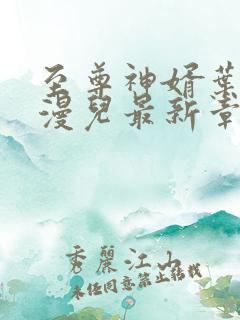 至尊神婿葉
漫兒最新章
秀麗江山
未经同意禁止转载